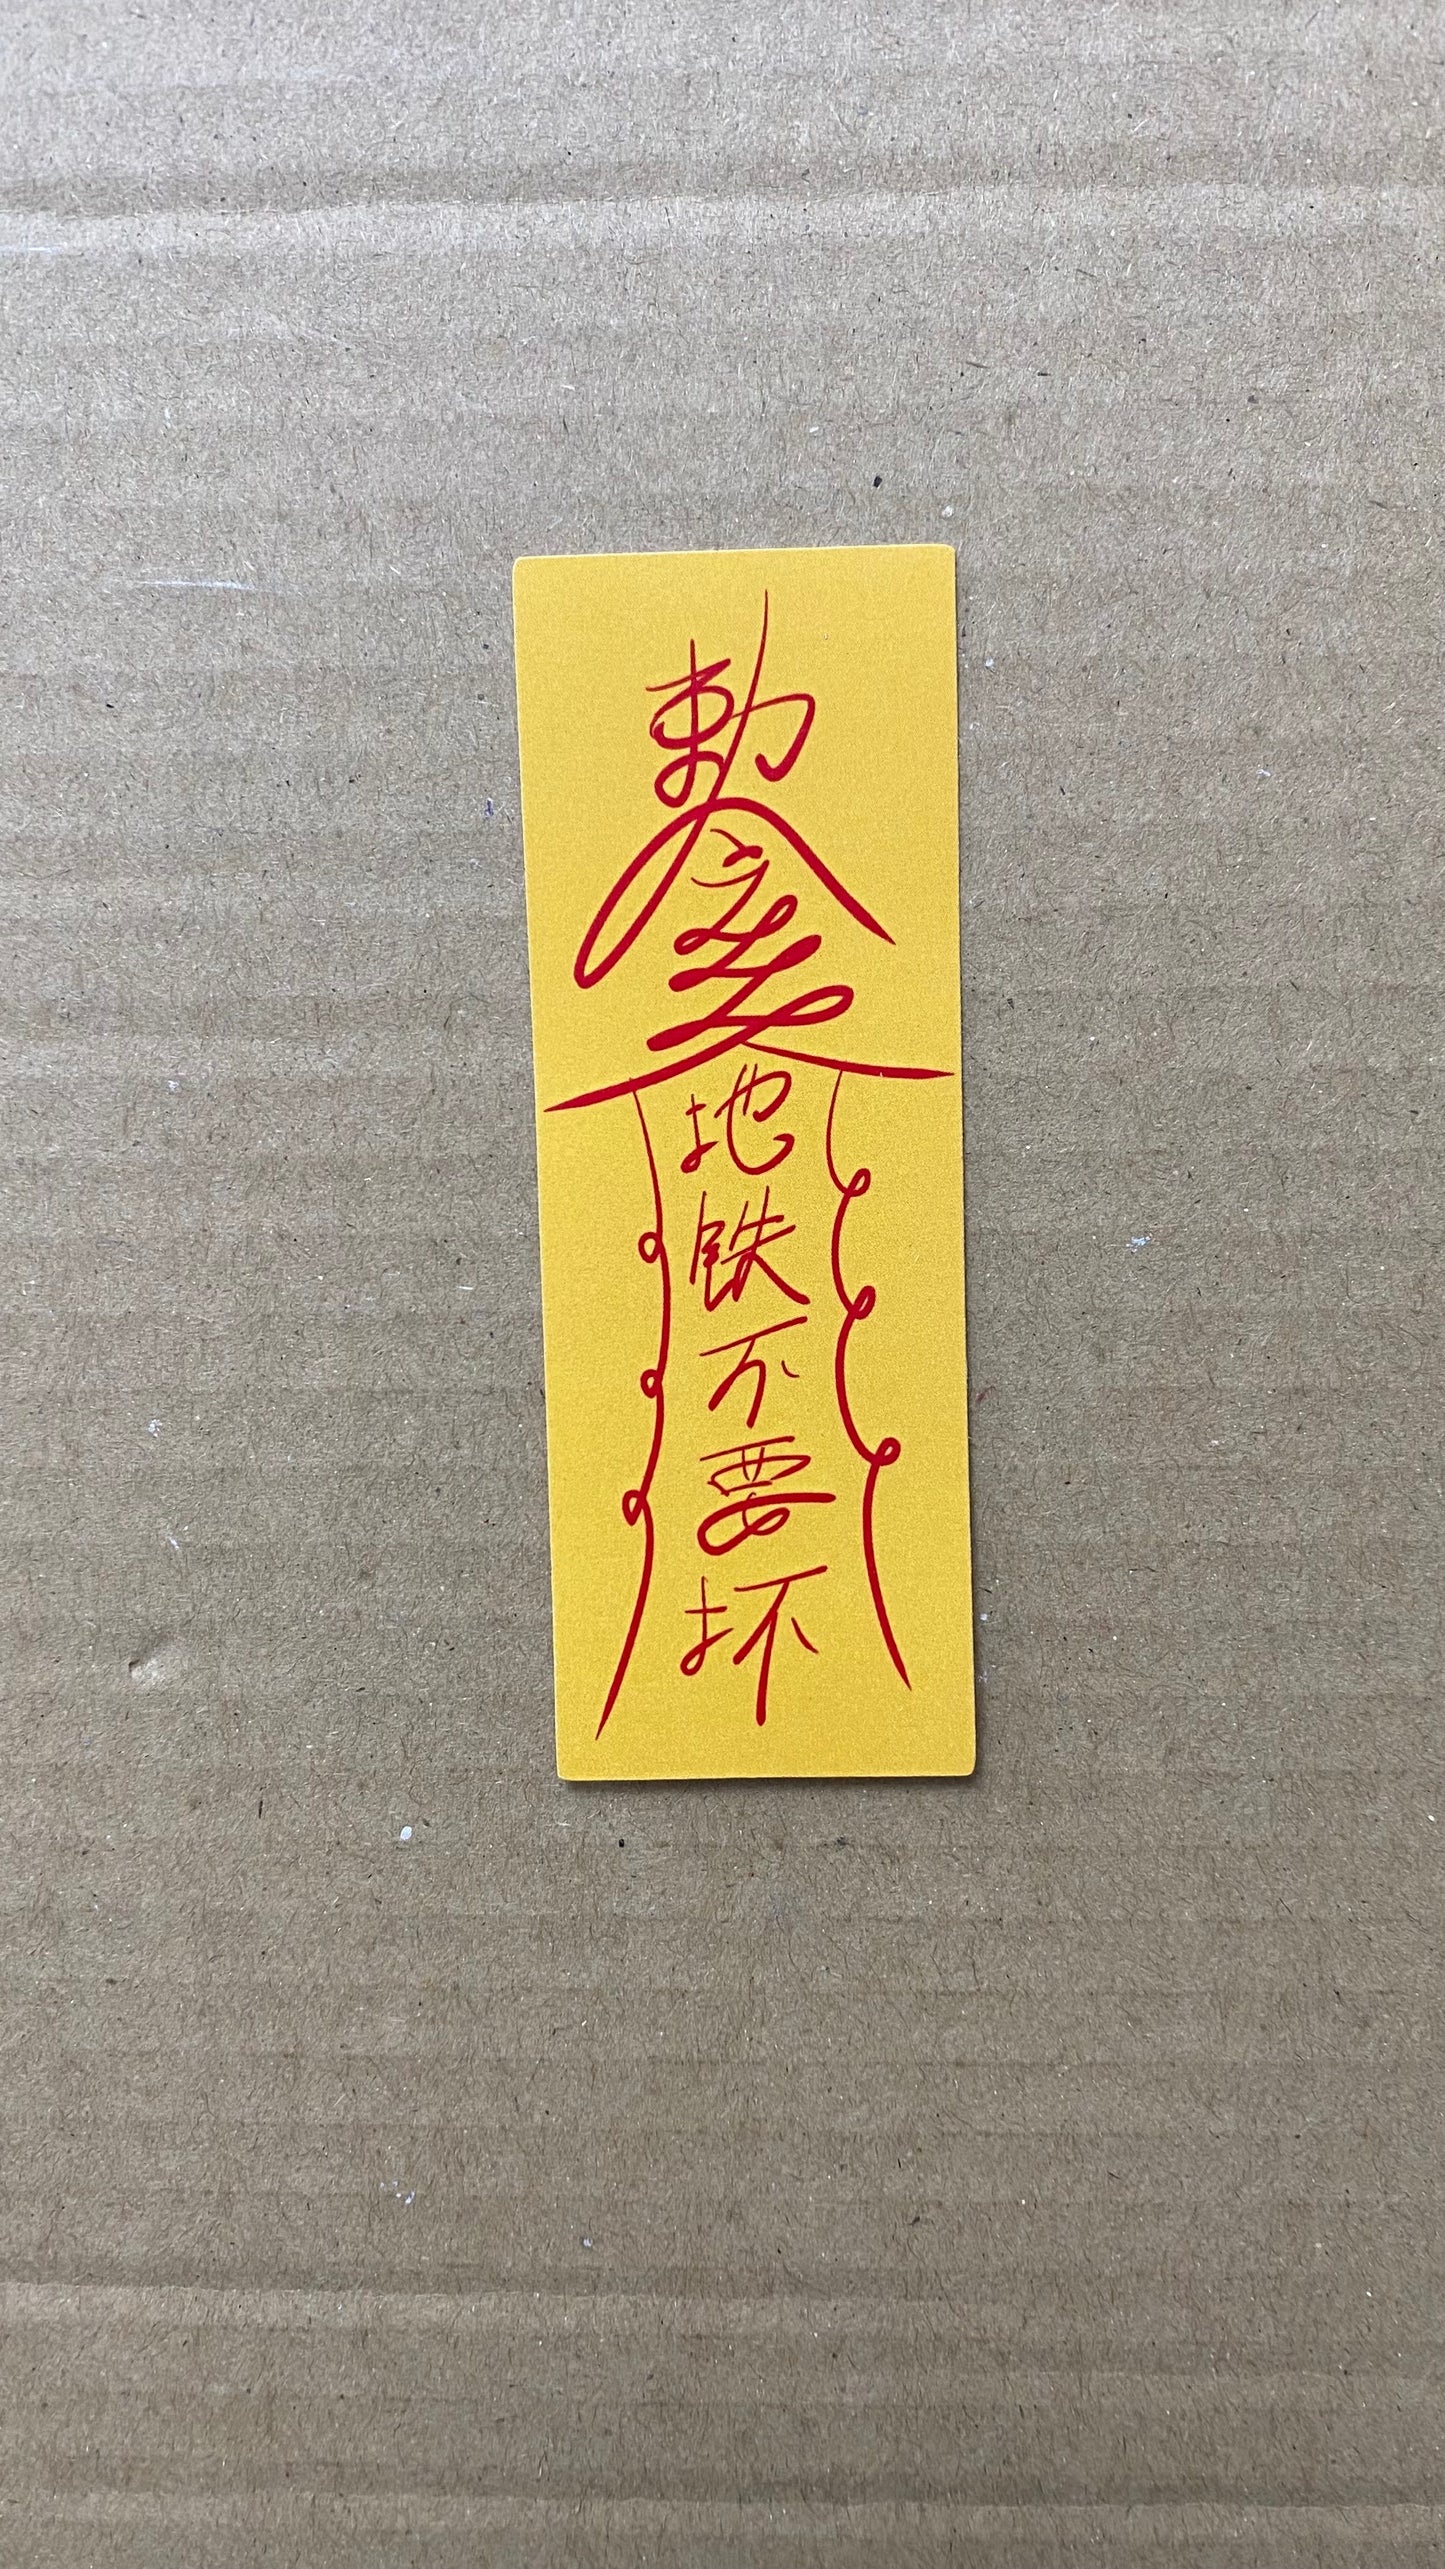 勅令
地鉄不要坏